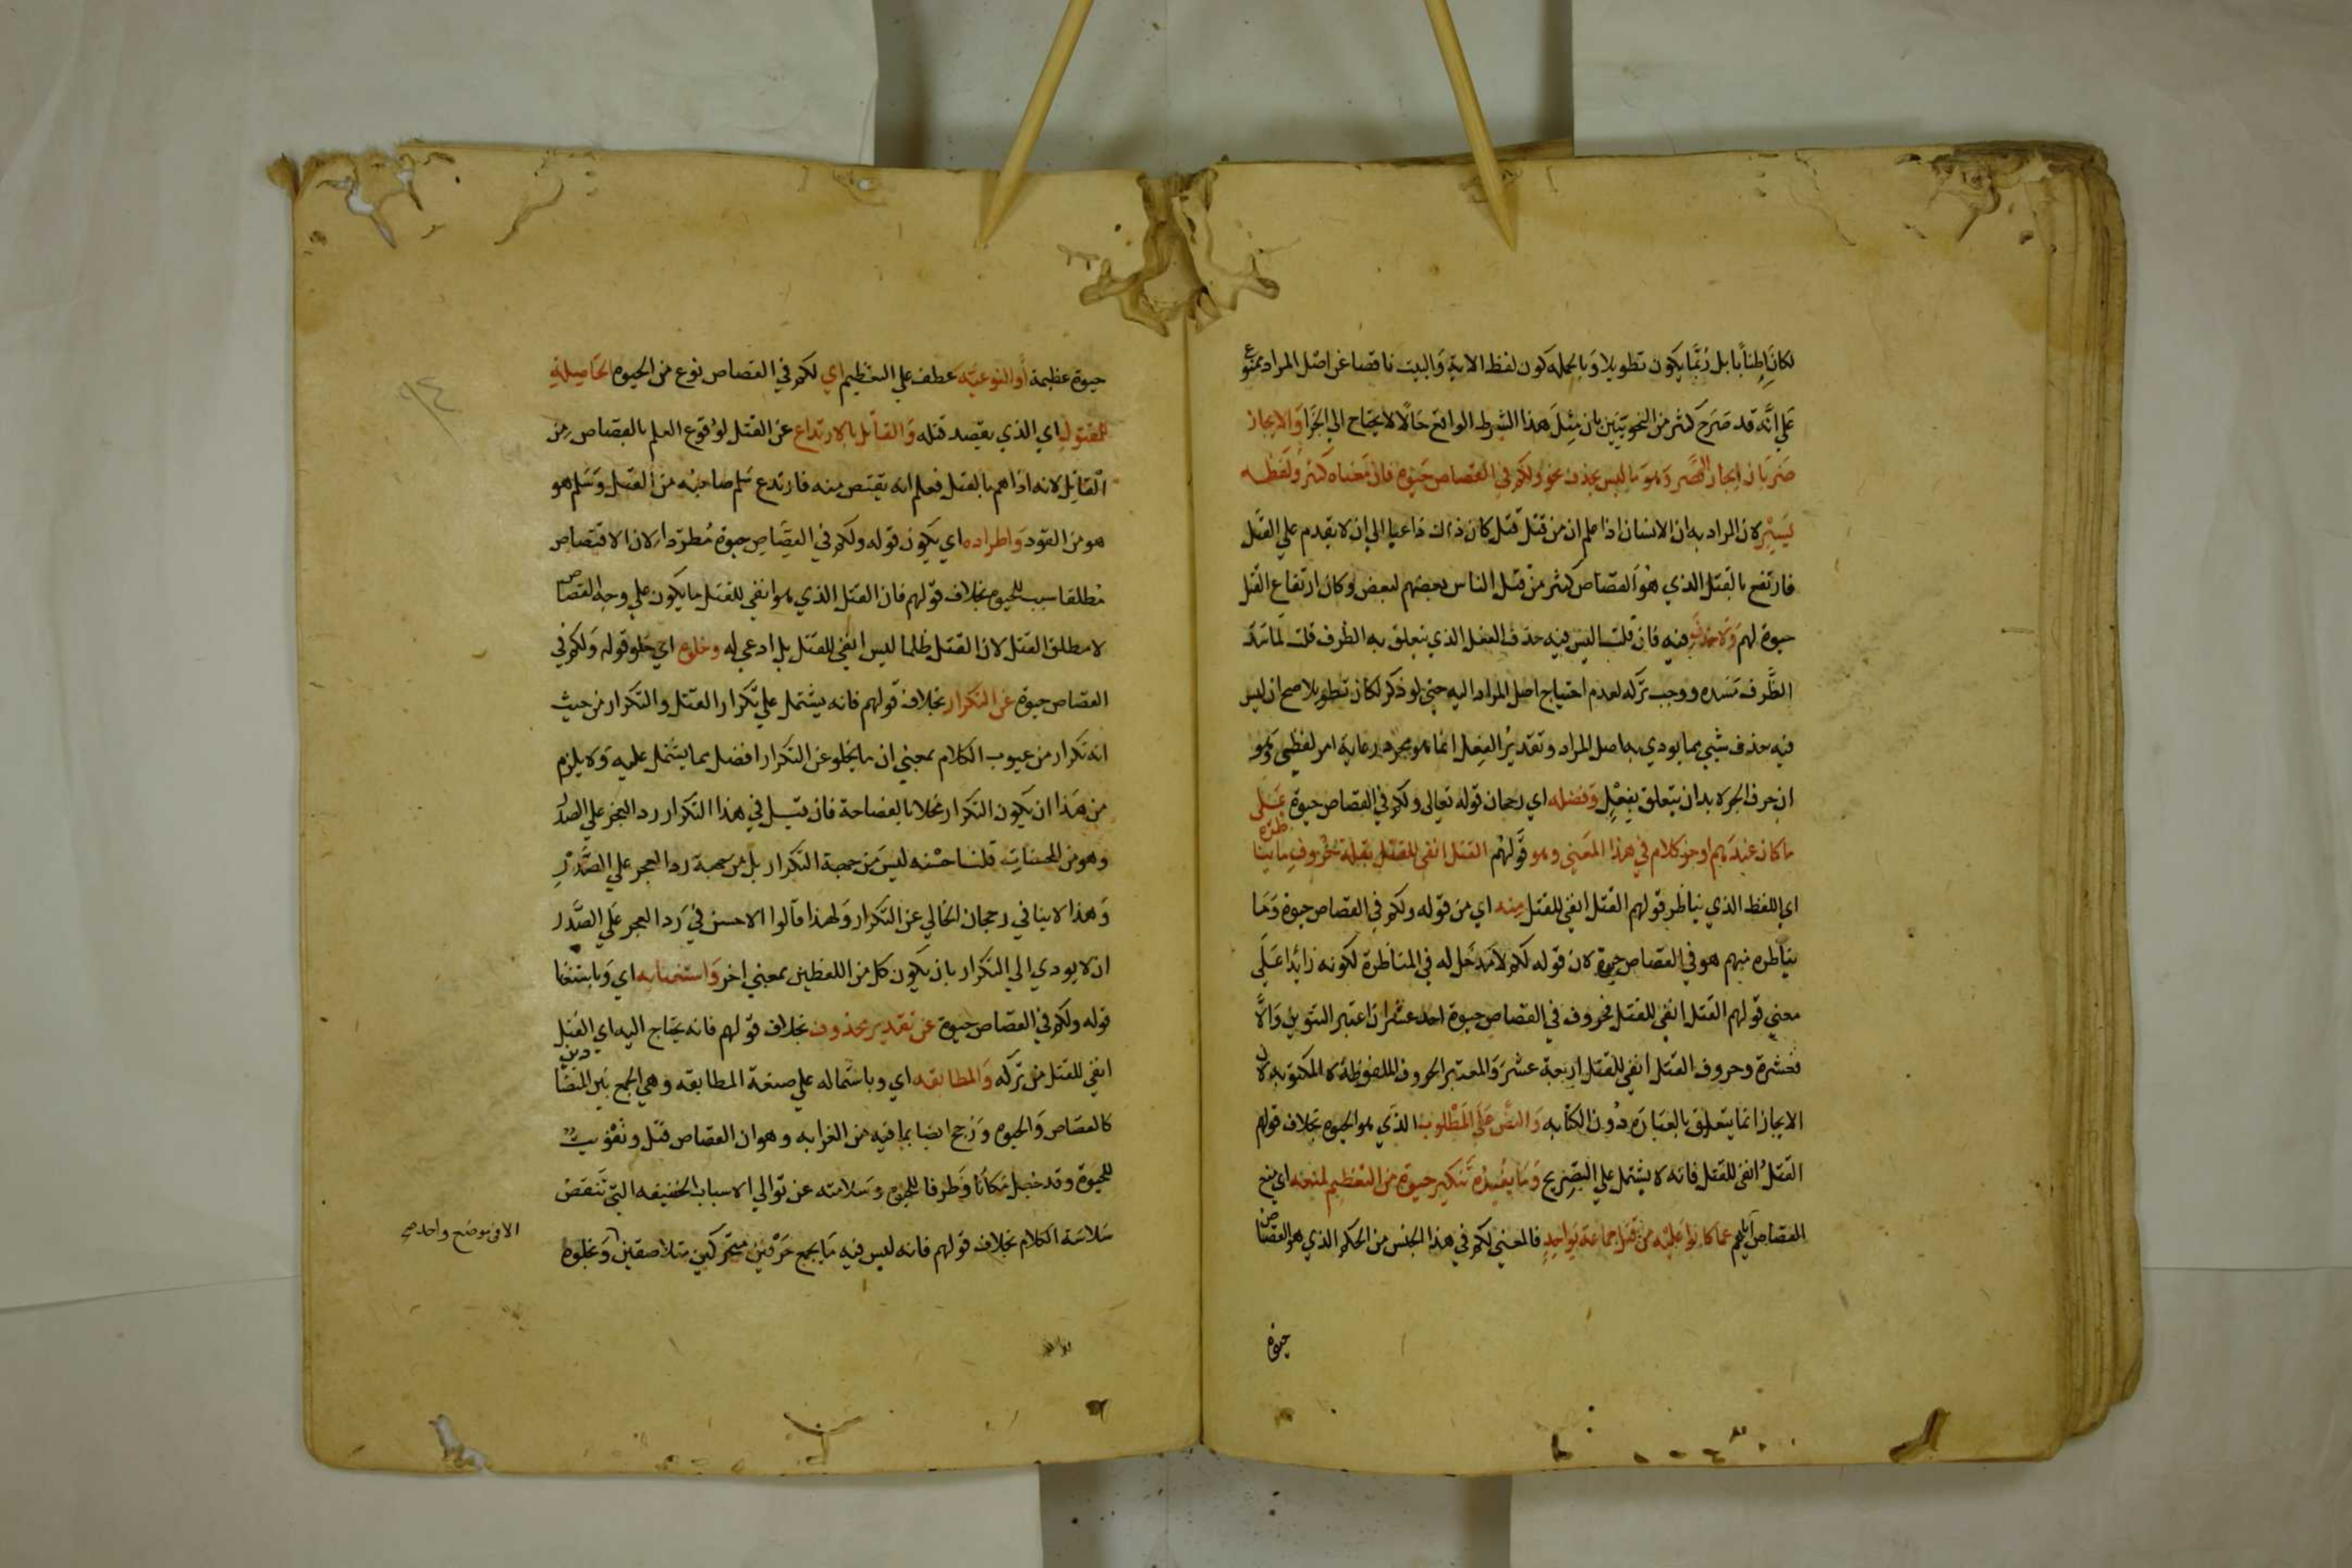 لكان اطنابا بل ربما يكون تطويلا وبالجملة كون لفظ الاية والبيت ناقصا عن اصل المراد ممنوع
على انه قد صرح كثر من النحويين بان مثل هذا الشرط الواقع حالا لا يحتاج الى الجزا والايجاز
ضربان ايجاز القصر وهو ما ليس بحذف نحو ولكم في القصاص حيوة فان معناه كثر ولفظه
يسير لان المراد به ان الانسان اذا علم ان من قتل قتل كان ذلك داعيا الى ان لا يقدم علي القتل
فارتفع بالقتل الذي هو القصاص كثر من قتل الناس بعضهم لبعض وكان ارتفاع القتل
حيوة لهم ولا حذف فيه فان قلت اليس فيه حذف الفعل الذي يتعلق به الظرف قلت لما سد
الظرف مسده ووجب تركه لعدم احتياج اصل المراد اليه حتى لو ذكر لكان تطويلا صح ان ليس
فيه حذف شيي مما يودي به اصل المراد وتقدير الفعل انما هو مجرد رعاية امر لفظي وهو
ان حرف الجر لا بد ان يتعلق بفعل وفضله اي رجحان قوله تعالى ولكم في القصاص حيوة على
ما كان عندهم اوجز كلام في هذا المعني وهو قولهم القتل انفى للقتل بقلة حروف ما يناظره
اي اللفظ الذي يناظر قولهم القتل انفي للقتل منه اي من قوله ولكم في القصاص حيوة وما
يناظره منهم هو في القصاص حيوة لان قوله لكم لا مدخل له في المناظرة لكونه زائدا على
معني قولهم القتل انفي للقتل فحروف في القصاص حيوة احد عشر ان اعتبر التنوين والا
فعشرة وحروف القتل انفي للقتل اربعة عشر والمعتبر الحروف الملفوظة لا المكتوبة لان
الايجاز انما يتعلق بالعبارة دون الكتابه والنص على المطلوب الذي هو الحيوة بخلاف قولهم
القتل انفى للقتل فانه لا يشتمل علي التصريح وما يفيده تنكير حيوة من التعظيم لمنعه اي منع
القصاص اياهم عما كانوا عليه من قتل جماعة بواحد فالمعني لكم في هذا الجنس من الحكم الذي هو القصاص
حيوة
حيوة عظيمة أو النوعيه عطف علي التعظيم اي لكم في القصاص نوع من الحيوة الحاصلة
للمقتول اي الذي يقصد قتله والقاتل بالارتداع عن القتل لوقوع العلم بالقصاص من
القاتل لانه اذا هم بالقتل فعلم انه يقتص منه فارتدع سلم صاحبه من القتل وسلم هو
هو من القود واطراده اي يكون قوله ولكم في القصاص حيوة مطردا لان الاقتصاص
مطلقا سبب للحيوة بخلاف قولهم فان القتل الذي هو انفي للقتل ما يكون على وجه القصاص
لا مطلق القتل لان القتل ظلما ليس انفي للقتل بل ادعى له وخلوه اي خلو قوله ولكم في
القصاص حيوة عن التكرار بخلاف قولهم فانه يشتمل علي تكرار القتل والتكرار من حيث
انه تكرار من عيوب الكلام بمعني ان ما يخلو عن التكرار افضل مما يشتمل عليه ولا يلزم
من هذا ان يكون التكرار مخلا بالفصاحة فان قيل في هذا التكرار رد العجز على الصدر
وهو من المحسنات قلنا حسنه ليس من جهة التكرار بل من جهة رد العجز علي الصدر
وهذا لا ينافي رجحان الخالي عن التكرار ولهذا قالوا الاحسن في رد العجز علي الصدر
ان لا يودي الي التكرار بان يكون كل من اللفظين بمعني اخر واستغنايه اي وباستغنا
قوله ولكم في القصاص حيوة عن تقدير محذوف بخلاف قولهم فانه يحتاج اليه اي القتل
انفي للقتل من تركه والمطابقه اي وباشتماله علي صنعة المطابقه وهي الجمع بين المتضادين
كالقصاص والحيوة ورجح ايضا بما فيه من الغرابه وهو ان القصاص قتل وتفويت
للحيوة وقد جعل مكانا وظرفا للحيوة وسلامته عن توالي الاسباب الخفيفه التي تنقص
سلاسة الكلام بخلاف قولهم فانه ليس فيه ما يجمع حرفين متحركين متلاصقين وبخلوه
الا في موضع واحد صح